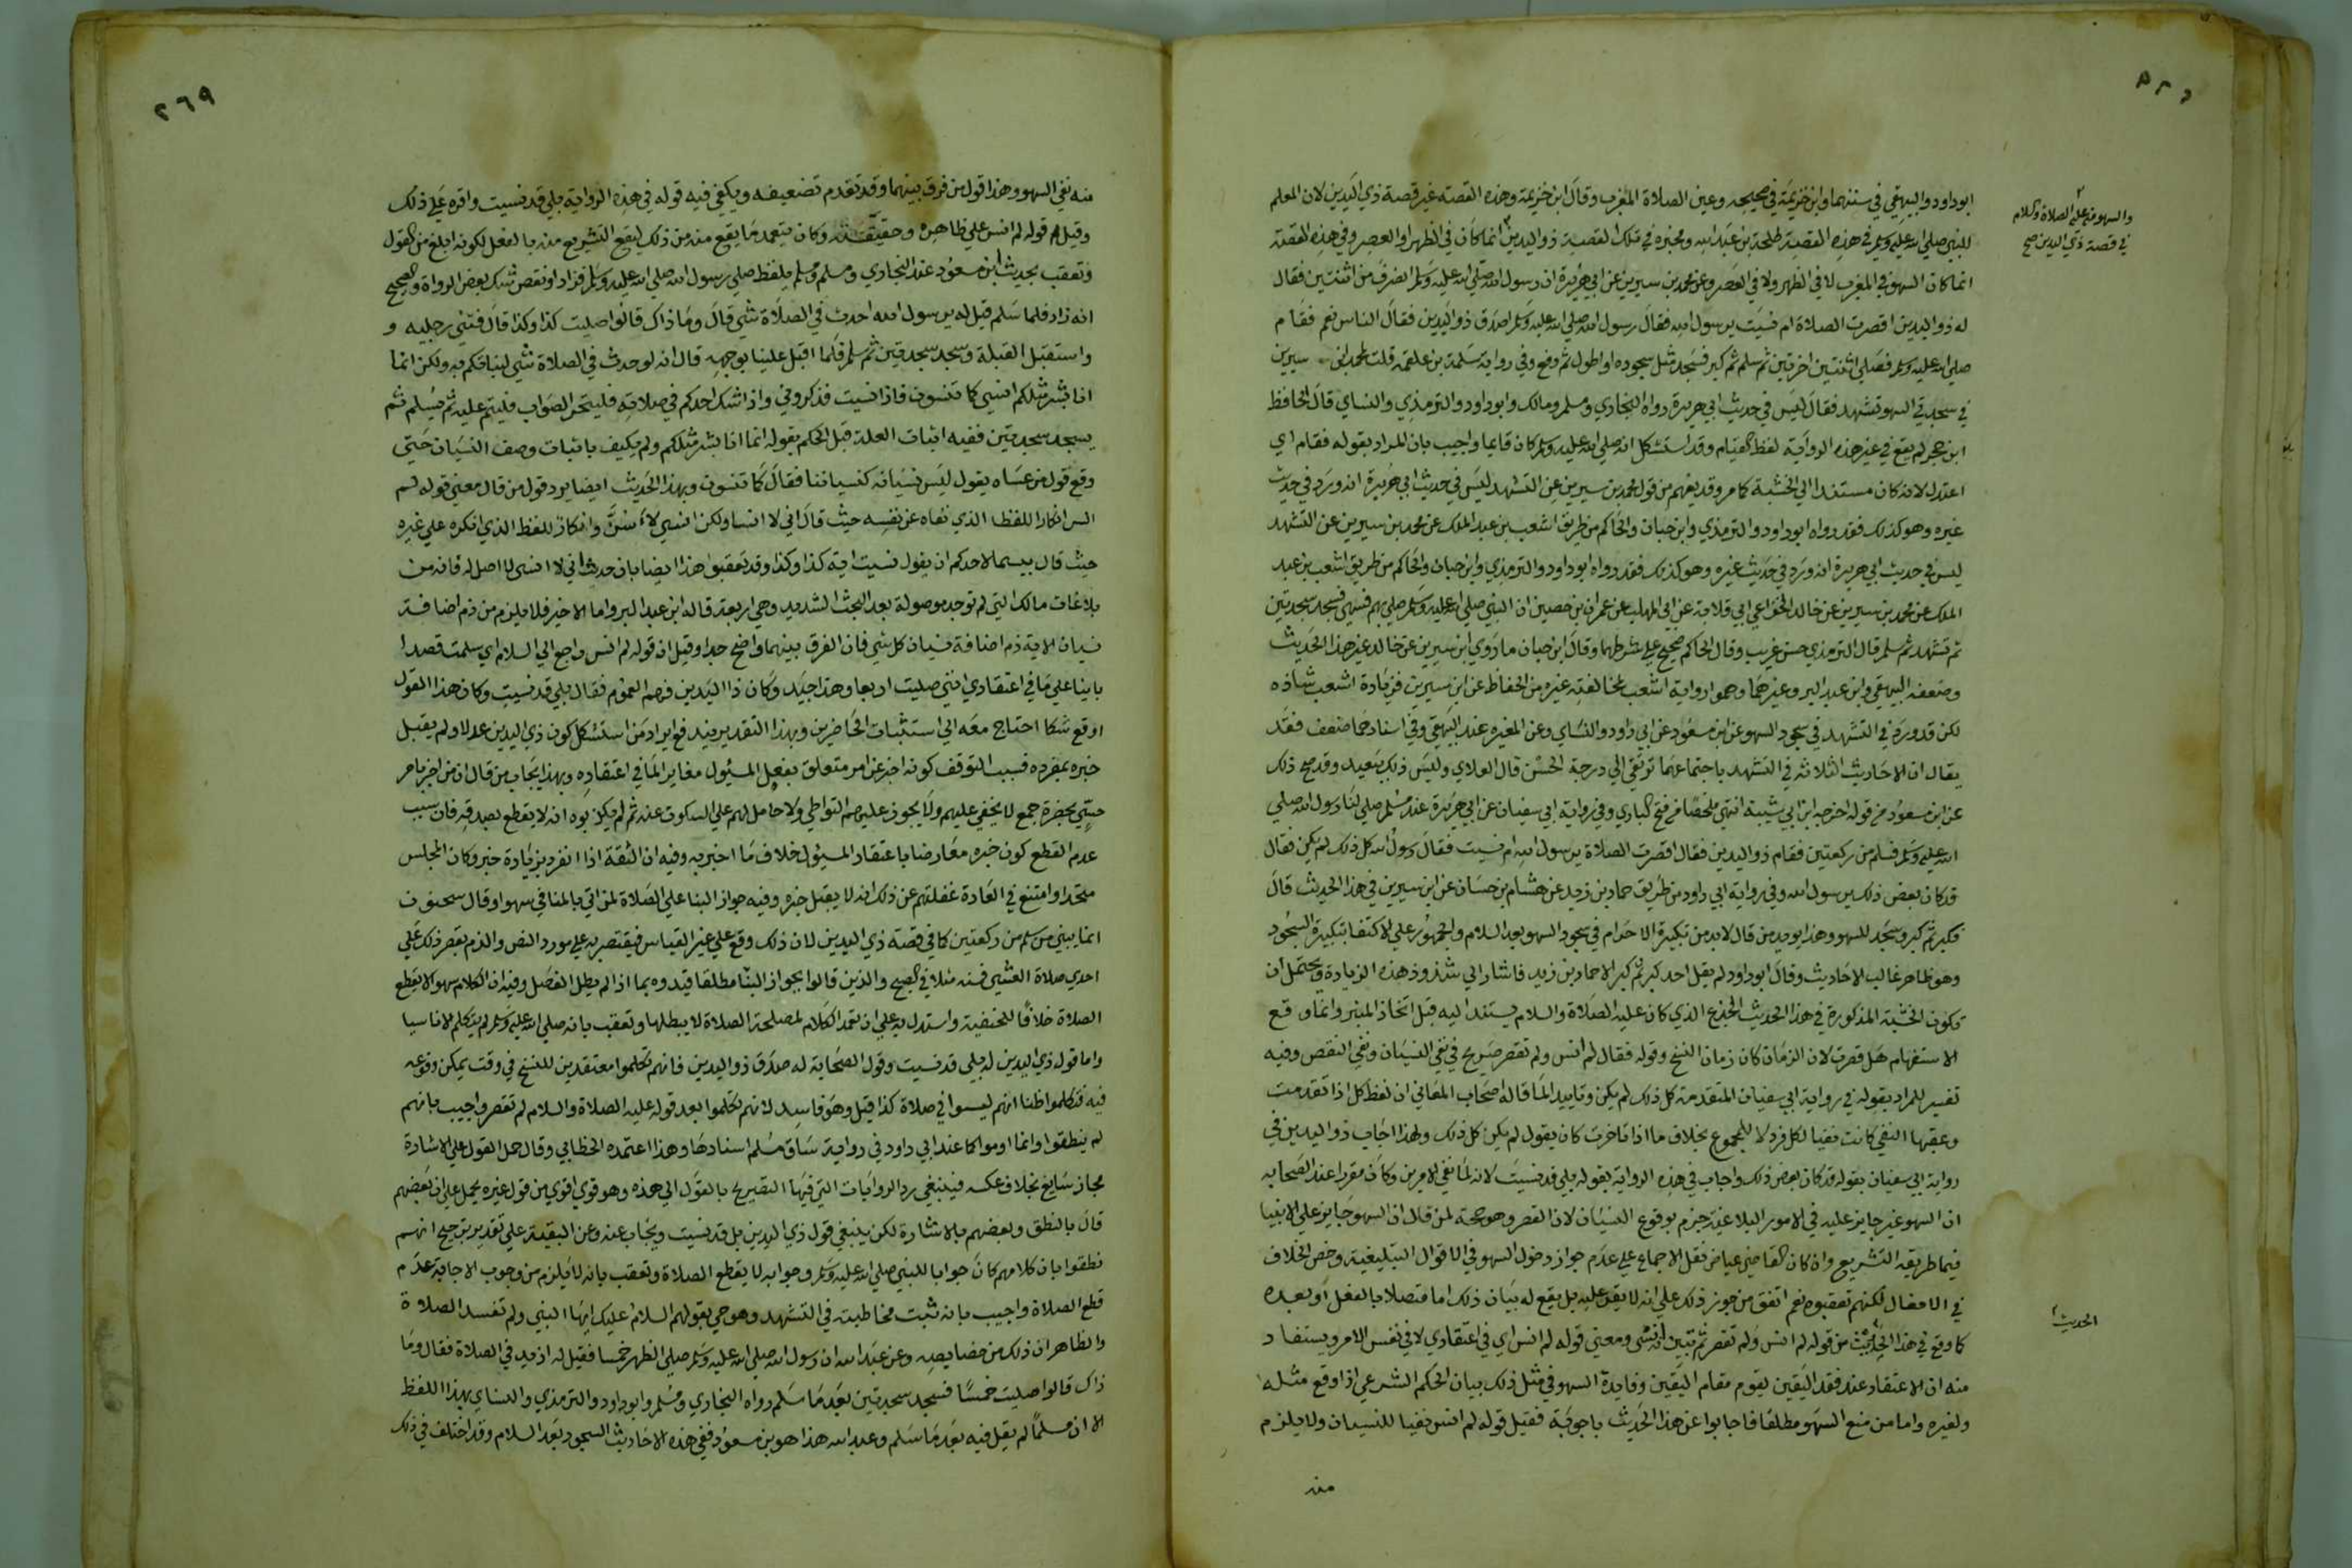 ابوداود والبيهقي في سننهما وابن خزيمة في صحيحه وعين الصلاة المغرب وقال ابن خزيمة وهذه القصة غير قصة ذي اليدين لان المعلم
والسهو منه عليه الصلاة والسلام
في قصة ذي اليدين صح
للنبي صلي الله عليه وسلم في هذه القصة طلحة بن عبيد الله ومخبره في تلك القصة ذو اليدين انما كان في الظهر او العصر وفي هذه القصة
انما كان السهو في المغرب لا في الظهر ولا في العصر وعن محمد بن سيرين عن ابي هريرة ان رسول الله صلي الله عليه وسلم انصرف من اثنتين فقال
له ذو اليدين اقصرت الصلاة ام نسيت يرسول الله فقال رسول الله صلي الله عليه وسلم اصدق ذو اليدين فقال الناس نعم فقام
صلي الله عليه وسلم فصلي اثنتين اخرتين ثم سلم ثم كبر فسجد مثل سجوده او اطول ثم رفع وفي رواية سلمة بن علقمة قلت لمحمد ابن سيرين
في سجدتي السهو تشهد فقال ليس في حديث ابي هريرة رواه البخاري ومسلم ومالك وابوداود والترمذي والنساي قال الحافظ
ابن حجر لم يقع في غير هذه الرواية لفظ القيام وقد استشكل انه صلي الله عليه وسلم كان قايما واجيب بان المراد بقوله فقام اي
اعتدل لانه كان مستندا الي الخشبة كما مر وقد يفهم من قول محمد بن سيرين عن التشهد ليس في حديث ابي هريرة انه ورد في حديث
غيره وهو كذلك فقد رواه ابوداود والترمذي وابن حبان والحاكم من طريق اشعب بن عبد الملك عن محمد بن سيرين عن التشهد
ليس في حديث ابي هريرة انه ورد في حديث غيره وهو كذلك فقد رواه ابوداود والترمذي وابن حبان والحاكم من طريق اشعب بن عبد
الملك عن محمد بن سيرين عن خالد الخزاعي ابي قلابة عن ابي المهلب عن عمران بن حصين ان النبي صلي الله عليه وسلم صلي بهم فسهي فسجد سجدتين
ثم تشهد ثم سلم قال الترمذي حسن غريب وقال الحاكم صحيح علي شرطهما وقال ابن حبان ما روي ابن سيرين عن خالد غير هذا الحديث
وضعفه البيهقي وابن عبد البر وغيرهما وهموا رواية اشعب لمخالفته غيره من الحفاظ عن ابن سيرين فزيادة اشعب شاذه
لكن قد ورد في التشهد في سجود السهو عن ابن مسعود عن ابي داود والنساي وعن المغيره عند البيهقي وفي اسنادهما ضعف فقد
يقال ان الاحاديث الثلاثة في التشهد باجتماعها ترتقي الي درجة الحسن قال العلاي وليس ذلك ببعيد وقد صح ذلك
عن ابن مسعود من قوله اخرجه ابن ابي شيبة انتهي ملخصا من فتح الباري وفي رواية ابي سفيان عن ابي هريرة عند مسلم صلي لنا رسول الله صلي
الله عليه وسلم فسلم من ركعتين فقام ذو اليدين فقال اقصرت الصلاة يرسول الله ام نسيت فقال رسول الله كل ذلك لم يكن فقال
قد كان بعض ذلك يرسول الله وفي رواية ابي داود من طريق حماد بن زيد عن هشام بن حسان عن ابن سيرين في هذا الحديث قال
فكبر ثم كبر وسجد للسهو وهذا يويد من قال لابد من تكبيرة الاحرام في سجود السهو بعد السلام والجمهور علي الاكتفا بتكبيرة السجود
وهو ظاهر غالب الاحاديث وقال ابوداود لم يقل احد كبر ثم كبر الا حماد بن زيد فاشار الي شذوذ هذه الزيادة ويحتمل ان
تكون الخشبة المذكورة في هذا الحديث الجذع الذي كان عليه الصلاة والسلام يستند اليه قبل اتخاذ المنبر وانما وقع
الاستفهام هل قصرت لان الزمان كان زمان النسخ وقوله فقال لم انس ولم تقصر صريح في نفي النسيان ونفي النقص وفيه
تفسير للمراد بقوله في رواية ابي سفيان المتقدمة كل ذلك لم يكن وتاييد لما قاله اصحاب المعاني ان لفظ كل اذا تقدمت
وعقبها النفي كانت نفيا لكل فرد لا للمجموع بخلاف ما اذا تاخرت كان يقول لم يكن كل ذلك ولهذا اجاب ذو اليدين في
رواية ابي سفيان بقوله قد كان بعض ذلك واجاب في هذه الرواية بقوله بلي قد نسيت لانه لما نفي الامرين وكان مقررا عند الصحابه
ان السهو غير جايز عليه في الامور البلاغية جزم بوقوع النسيان لان القصر وهو حجة لمن قال ان السهو جايز علي الانبيا
فيما طريقه التشريع وان كان القاضي عياض نقل الاجماع علي عدم جواز دخول السهو في الاقوال التبليغية وخص الخلاف
في الافعال لكنهم تعقبوه نعم اتفق من جوز ذلك علي انه لا يقر عليه بل يقع له بيان ذلك اما متصلا بالفعل او بعده
الحديث
كما وقع في هذا الحديث من قوله لم انس ولم تقصر ثم تبين انه نسي ومعني قوله لم انس اي في اعتقادي لا في نفس الامر ويستفاد
منه ان الاعتقاد عند فقد اليقين يقوم مقام اليقين وفايدة السهو في مثل ذلك بيان الحكم الشرعي اذا وقع مثله
ولغيره واما من منع السهو مطلقا فاجابوا عن هذا الحديث باجوبة فقيل قوله لم انس نفيا للنسيان ولا يلزم
منه
٢٦٩
منه نفي السهو وهذا قول من فرق بينهما وقد تقدم تضعيفه ويكفي فيه قوله في هذه الرواية بلي قد نسيت واقره علي ذلك
وقيل قوله لم انس علي ظاهره وحقيقته وكان يتعمد ما يقع منه من ذلك ليقع التشريع منه بالفعل لكونه ابلغ من القول
وتعقب بحديث ابن مسعود عند البخاري ومسلم بلفظ صلي رسول الله صلي الله عليه وسلم فزاد او نقص شك بعض الرواة والصحيح
انه زاد فلما سلم قيل له يرسول الله احدث في الصلاة شي قال وما ذاك قالوا صليت كذا وكذا قال فثني رجليه و
واستقبل القبلة وسجد سجدتين ثم سلم فلما اقبل علينا بوجهه قال انه لو حدث في الصلاة شي لنباتكم به ولكن انما
انا بشر مثلكم انسي كما تنسون فاذا نسيت فذكروني واذا شك احدكم في صلاته فليتحر الصواب فليتم عليه ثم يسلم ثم
يسجد سجدتين ففيه اثبات العلة قبل الحكم بقوله انما انا بشر مثلكم ولم يكيف باثبات وصف النسيان حتي
وقع قول من عساه يقول ليس نسيانه كنسياننا فقال كما تنسون وبهذا الحديث ايضا يرد قول من قال معني قوله لم
انس انكارا للفظ الذي نفاه عن نفسه حيث قال اني لا انسا ولكن انسي لاسن وانكار اللفظ الذي انكره علي غيره
حيث قال بيسما لاحدكم ان يقول نسيت اية كذا وكذا وقد تعقبوا هذا ايضا بان حديث اني لا انسي لا اصل له فانه من
بلاغات مالك التي لم توجد موصولة بعد البحث الشديد وهي اربعة قاله ابن عبد البر واما الاخير فلا يلزم من ذم اضافة
نسيان الاية ذم اضافة نسيان كل شي فان الفرق بينهما واضح جدا وقيل ان قوله لم انس راجع الي السلام اي سلمت قصدا
بانيا علي ما في اعتقادي انني صليت اربعا وهذا جيد وكان ذا اليدين فهم العموم فقال بلي قد نسيت وكان هذا القول
اوقع شكا احتاج معه الي استثبات الحاضرين وبهذا التقدير يندفع ايراد من استشكل كون ذي اليدين عدلا ولم يقبل
خبره بمفرده فسبب التوقف كونه اخبر عن امر متعلق بفعل المسئول مغاير لما في اعتقاده وبهذا يجاب من قال ان من اخبر بامر
حسي بحضرة جمع لا يخفي عليهم ولا يجوز عليهم التواطي ولا حامل لهم علي السكوت عنه ثم لم يكذبوه انه لا يقطع بصدقه فان سبب
عدم القطع كون خبره معارضا باعتقاد المسئول خلاف ما اخبر به وفيه ان الثقة اذا انفرد بزيادة خبر وكان المجلس
متحدا وامتنع في العادة غفلتهم عن ذلك انه لا يقبل خبره وفيه جواز البنا علي الصلاة لمن اتي بالمنافي سهوا وقال سحنون
انما يبني من سلم من ركعتين كما في قصة ذي اليدين لان ذلك وقع علي غير القياس فيقتصر به علي مورد النص والزم بقصر ذلك علي
احدي صلاة العشي فمنه مثلا في الصبح والذين قالوا بجواز البنا مطلقا قيدوه بما اذا لم يطل الفصل وفيه ان الكلام سهوا لا يقطع
الصلاة خلافا للحنفية واستدل به علي ان تعمد الكلام لمصلحة الصلاة لا يبطلها وتعقب بانه صلي الله عليه وسلم لم يتكلم الا ناسيا
واما قول ذي اليدين له بلي قد نسيت وقول الصحابة له صدق ذو اليدين فانهم تكلموا معتقدين للنسخ في وقت يمكن وقوعه
فيه فتكلموا ظنا انهم ليسوا في صلاة كذا قيل وهو فاسد لانهم تكلموا بعد قوله عليه الصلاة والسلام لم تقصر واجيب بانهم
لم ينطقوا وانما اوموا كما عند ابي داود في رواية ساق مسلم اسنادها وهذا اعتمده الخطابي وقال حمل القول علي الاشارة
مجاز سايغ بخلاف عكسه فينبغي رد الروايات التي فيها التصريح بالقول الي هذه وهو قوي اقوي من قول غيره يحمل علي ان بعضهم
قال بالنطق وبعضهم بالاشارة لكن ينبغي قول ذي اليدين بل قد نسيت ويجاب عنه وعن البقية علي تقدير ترجيح انهم
نطقوا بان كلامهم كان جوابا للنبي صلي الله عليه وسلم وجوابه لا يقطع الصلاة وتعقب بانه لا يلزم من وجوب الاجابة عدم
قطع الصلاة واجيب بانه ثبت مخاطبته في التشهد وهو حي بقولهم السلام عليك ايها النبي ولم تفسد الصلاة
والظاهر ان ذلك من خصايصه وعن عبد الله ان رسول الله صلي الله عليه وسلم صلي الظهر خمسا فقيل له ازيد في الصلاة فقال وما
ذاك قالوا صليت خمسا فسجد سجدتين بعد ما سلم رواه البخاري ومسلم وابوداود والترمذي والنساي بهذا اللفظ
الا ان مسلما لم يقل فيه بعد ما سلم وعبد الله هذا هو بن مسعود ففي هذه الاحاديث السجود بعد السلام وقد اختلف في ذلك